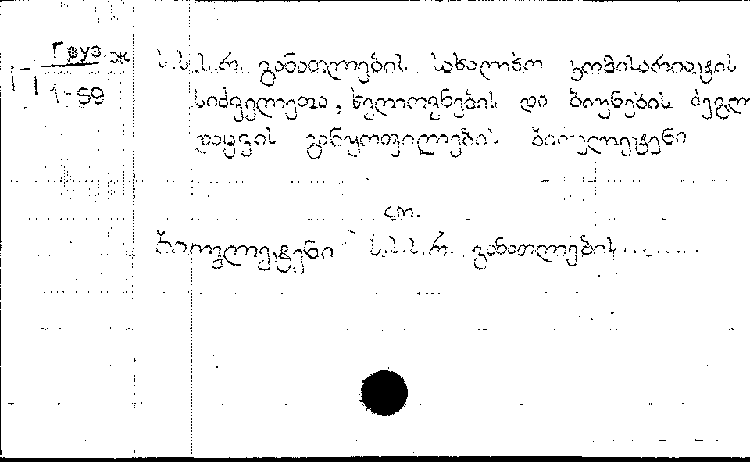 Груз ж ს.ს.ს.რ. განათლების სახალხო კომისარიატის
П 1-59 სიძველეთა, ხელოვნების და ბუნების ძეგლ
დაცვის განყოფილების ბიულეტენი
см.
ბიულეტენი ს.ს.ს.რ. განათლების......